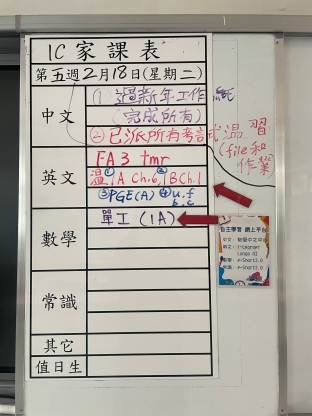 1C 家課表
第五週2月18日(星期二)
中文
(1) 過新年工作紙
(完成所有)
(2) 已派所有考試溫習
(file和
作業)
英文
FA3 tmr
溫①1A Ch.6 ②1B Ch.1
③PGE(A) ④u.f
b.c
數學
單工 (1A)
常識
其它
值日生
自主學習 網上平台